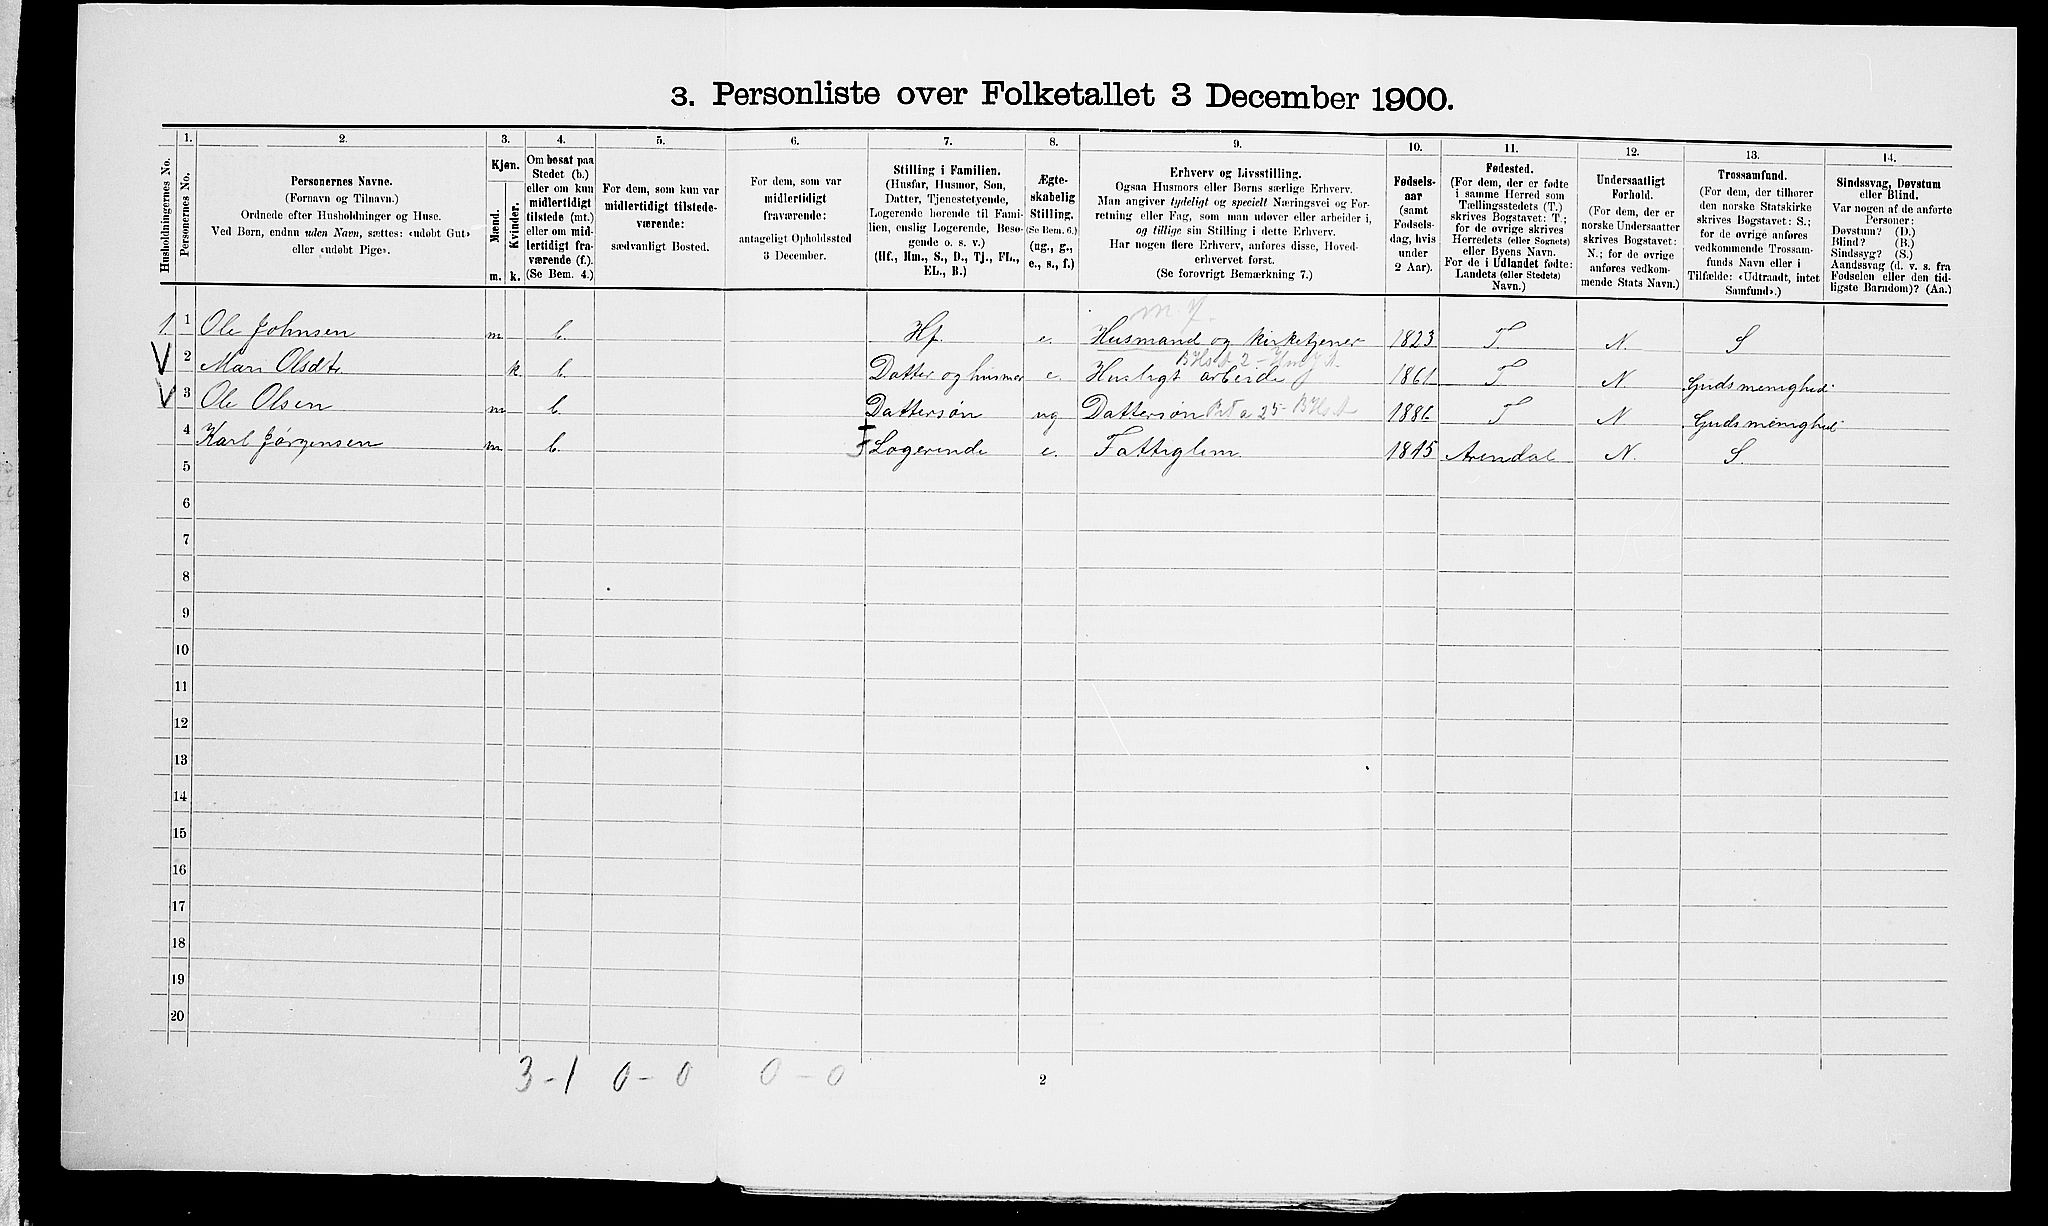 3. Personliste over Folketallet 3 December 1900.
Husholdningernes No.
1.
Personernes No.
2.
Personernes Navne.
(Fornavn og Tilnavn.)
Ordnede efter Husholdninger og Huse.
Ved Børn, endnu uden Navn, sættes: «udøbt Gut»
eller «udøbt Pige».
3.
Kjøn.
Mænd.
Kvinder.
m. k.
4.
Om bosat paa
Stedet (b.)
eller om kun
midlertidigt
tilstede (mt.)
eller om mid-
lertidigt fra-
værende (f.).
(Se Bem. 4.)
5.
For dem, som kun var
midlertidigt tilstede-
værende:
sædvanligt Bosted.
6.
For dem, som var
midlertidigt
fraværende:
antageligt Opholdssted
3 December.
7.
Stilling i Familien.
(Husfar, Husmor, Søn,
Datter, Tjenestetyende,
Logerende hørende til Fami-
lien, enslig Logerende, Besø-
gende o. s. v.)
(Hf., Hm., S., D., Tj., FL.,
EL., B.)
8.
Ægte-
skabelig
Stilling.
(Se Bem. 6.)
(ug., g.,
e., s., f.)
9.
Erhverv og Livsstilling.
Ogsaa Husmors eller Børns særlige Erhverv.
Man angiver tydeligt og specielt Næringsvei og For-
retning eller Fag, som man udøver eller arbeider i,
og tillige sin Stilling i dette Erhverv.
Har nogen flere Erhverv, anføres disse, Hoved-
erhvervet først.
(Se forøvrigt Bemærkning 7.)
10.
Fødsels-
aar
(samt
Fødsels-
dag, hvis
under
2 Aar).
11.
Fødested.
(For dem, der er fødte
i samme Herred som
Tællingsstedets (T.)
skrives Bogstavet: T.;
for de øvrige skrives
Herredets (eller Sognets)
eller Byens Navn.
For de i Udlandet fødte:
Landets (eller Stedets)
Navn.)
12.
Undersaatligt
Forhold.
(For dem, der er
norske Undersaatter
skrives Bogstavet:
N.; for de øvrige
anføres vedkom-
mende Stats Navn.)
13.
Trossamfund.
(For dem, der tilhører
den norske Statskirke
skrives Bogstavet: S.;
for de øvrige anføres
vedkommende Trossam-
funds Navn eller i
Tilfælde: «Udtraadt, intet
Samfund».)
14.
Sindssvag, Døvstum
eller Blind.
Var nogen af de anførte
Personer:
Døvstum? (D.)
Blind? (B.)
Sindssyg? (S.)
Aandssvag (d. v. s. fra
Fødselen eller den tid-
ligste Barndom)? (Aa.)
1. 1 Ole Johnsen m. b. Hf. e. Husmand og kirketjener 1823 T N. S
2 Mari Olsdtr k. b. Datter og husmor e. Husligt arbeide 1861 T N. Gudsmenighed
3 Ole Olsen m b. Dattersøn ug Dattersøn 1886 T N Gudsmenighed
4 Karl Jørgensen m. b. Logerende e. Fattiglem. 1815 Arendal N. S.
5
6
7
8
9
10
11
12
13
14
15
16
17
18
19
20
3-1 0-0 0-0
2